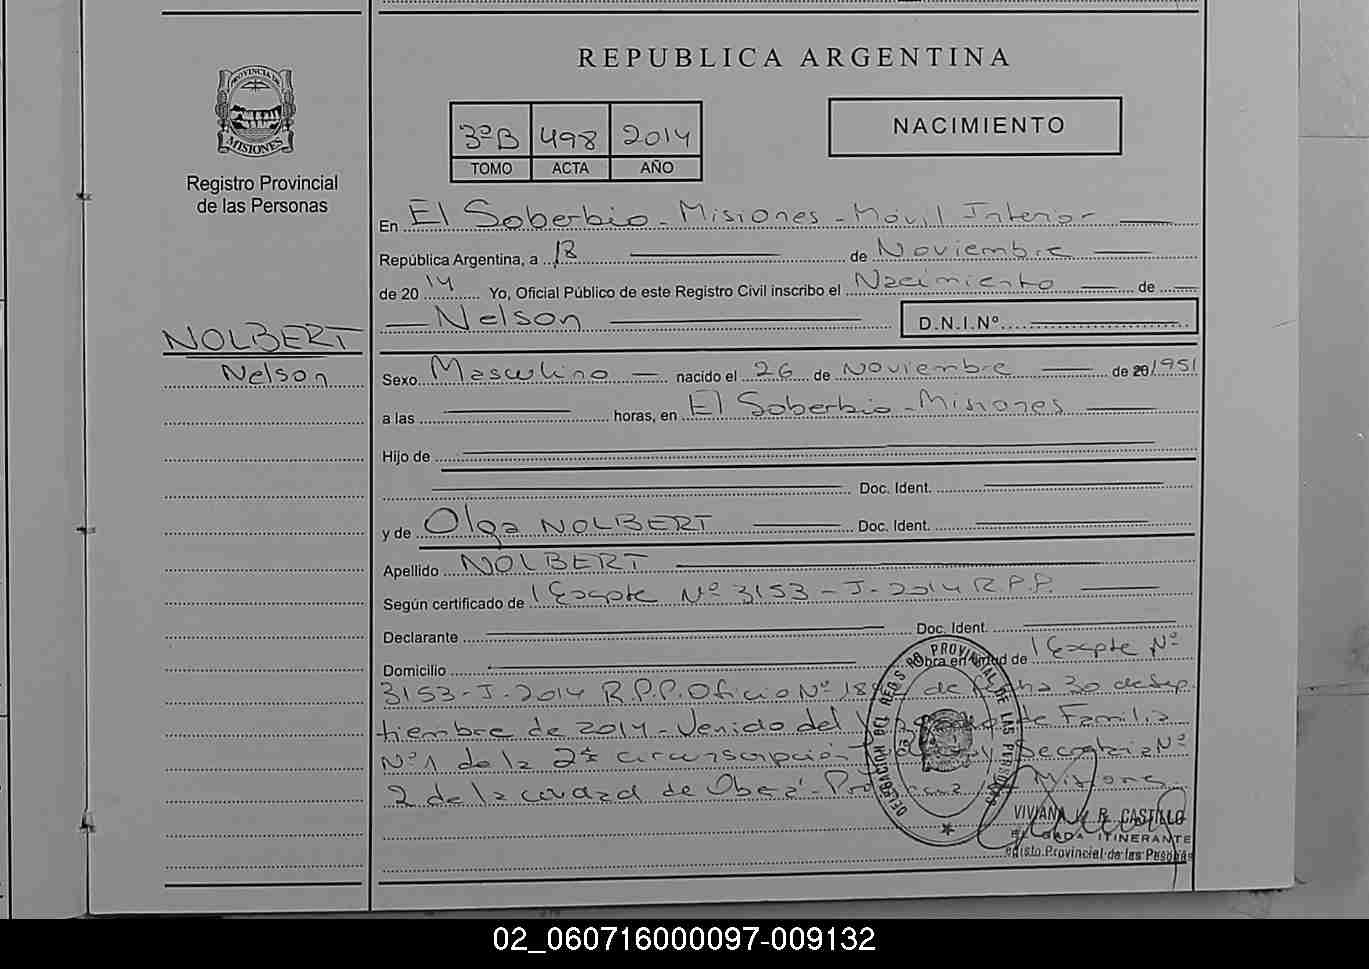 REPUBLICA ARGENTINA
PROVINCIA DE
MISIONES
Registro Provincial
de las Personas
3ºB 498 2014
TOMO ACTA AÑO
NACIMIENTO
En El Soberbio - Misiones - Móvil Interior
República Argentina, a 18 de Noviembre
de 20 14 Yo, Oficial Público de este Registro Civil inscribo el Nacimiento de
Nelson D.N.I.Nº
NOLBERT
Nelson
Sexo Masculino nacido el 26 de Noviembre de 20 1951
a las horas, en El Soberbio - Misiones
Hijo de
Doc. Ident.
y de Olga NOLBERT Doc. Ident.
Apellido NOLBERT
Según certificado de Expte Nº 3153 - J - 2014 R.P.P.
Declarante Doc. Ident.
Domicilio Obra en virtud de Expte Nº
3153 - J - 2014 R.P.P. Oficio Nº de fecha 30 de sep
tiembre de 2014 - Venido del de Familia
Nº 1 de la 2da circunscripción y Secretaria Nº
2 de la ciudad de Oberá - Misiones.
DELEGACION DEL REGISTRO PROVINCIAL DE LAS PERSONAS
VIVIANA R. CASTILLO
ITINERANTE
Registo Provincial de las Pesonas
02_060716000097-009132